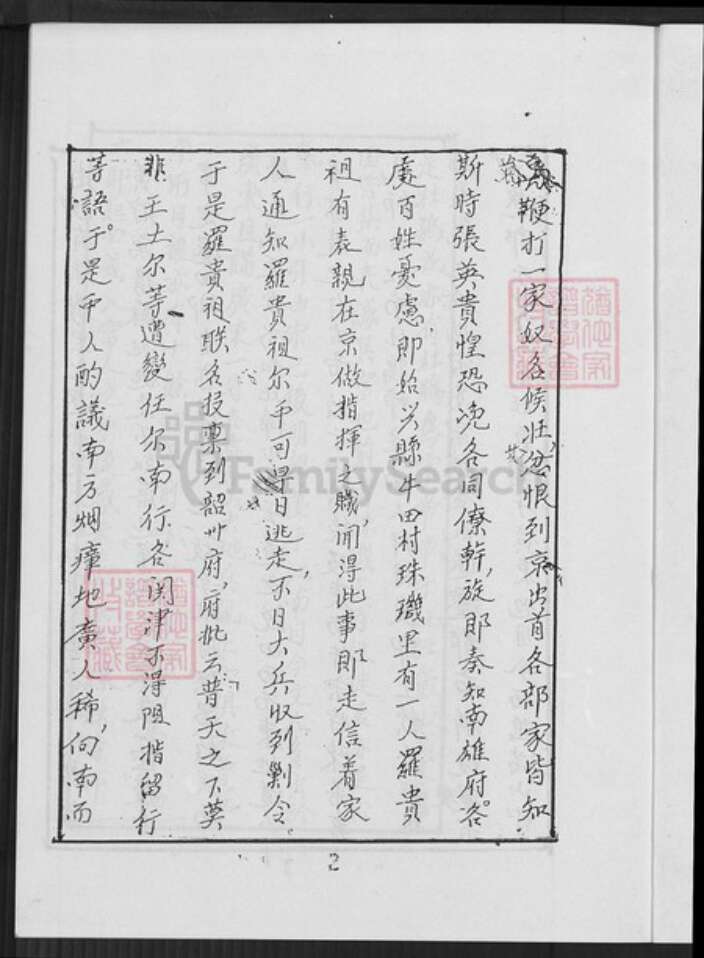 萬鞭打一家奴名候壯忿恨到京出首各部家皆知
斯時張英貴惶恐況各同僚幹旋即奏知南雄府各
處百姓憂慮即始兴縣牛田村珠璣里有一人羅貴
祖有表親在京做指揮之職闻得此事即走信着家
人通知羅貴祖尔等可得日逃走不日大兵收到剿令
于是羅貴祖联名投稟到韶州府府批云普天之下莫
非王土尔等遭變任尔南行各関津不得阻揩留行
等語于是平人酌議南方烟瘴地廣人稀向南而
2
FamilySearch